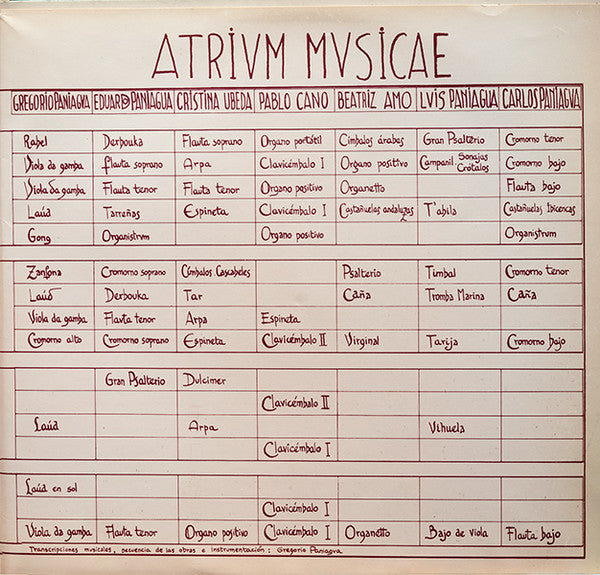 ATRIVM MVSICAE
GREGORIO PANIAGVA EDUARDO PANIAGUA CRISTINA UBEDA PABLO CANO BEATRIZ AMO LVIS PANIAGUA CARLOS PANIAGVA
Rabel Derbouka Flauta soprano Organo portátil Címbalos árabes Gran Psalterio Cromorno tenor
Viola da gamba flauta soprano Arpa Clavicémbalo I Organo positivo Campanil Sonajas Crótalos Cromorno bajo
Viola da gamba Flauta tenor Flauta tenor Organo positivo Organetto Flauta bajo
Laúd Tarreñas Espineta Clavicémbalo I Castañuelas andaluzas T'abila Castañuelas Ibicencas
Gong Organistrvm Organo positivo Organistrvm
Zanfona Cromorno soprano Címbalos Cascabeles Psalterio Timbal Cromorno tenor
Laúd Derbouka Tar Caña Tromba Marina Caña
Viola da gamba Flavta tenor Arpa Espineta
Cromorno alto Cromorno soprano Espineta Clavicémbalo II Virginal Tarija Cromorno bajo
Gran Psalterio Dulcimer
Clavicémbalo II
Laúd Arpa Vihuela
Clavicémbalo I
Laúd en sol
Clavicémbalo I
Viola da gamba Flauta tenor Organo positivo Clavicémbalo I Organetto Bajo de viola Flauta bajo
Transcripciones musicales, secuencia de las obras e instrumentación: Gregorio Paniagva